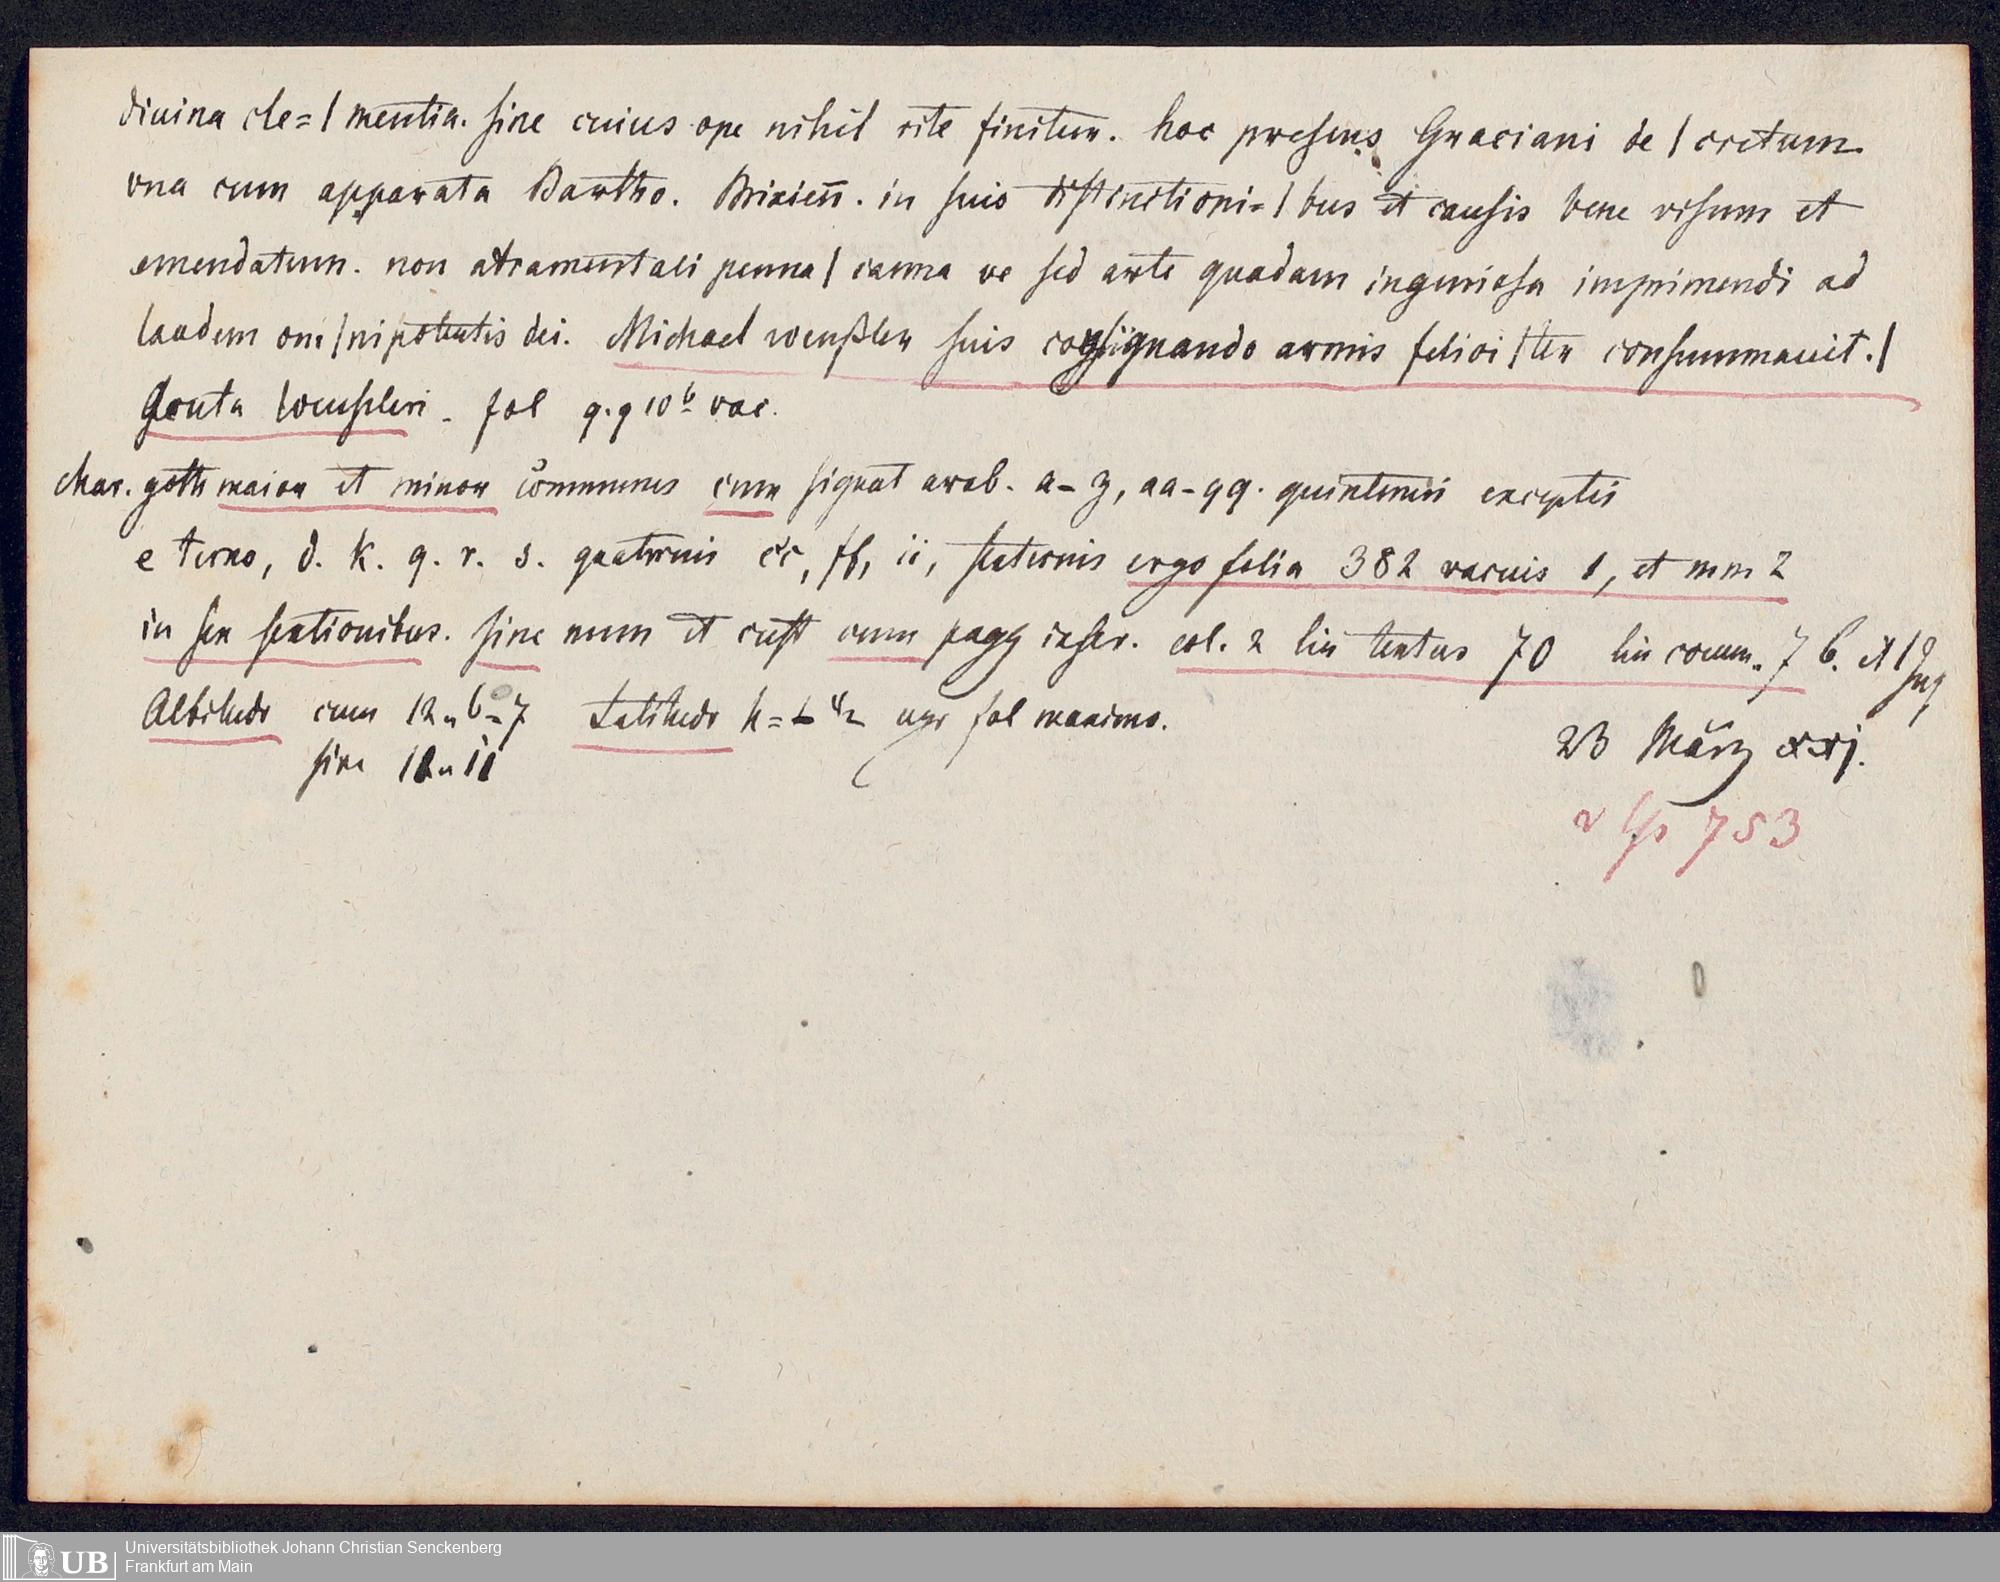 diuina cle=| mentia. sine cuius ope nihil rite finitur. hoc presens Graciani de | cretum
vna cum apparata Bartho. Brixieñ. in suis distinctioni=| bus et causis bene visum et
emendatum. non atramentali penna | canna ve sed arte quadam ingeniosa imprimendi ad
laudem om|nipotentis dei. Michael wenßler suis consignando armis felici|ter consummauit.|
Scuta Wenssleri - fol q.q 10ᵇ vac.
char. goth maior et minor communes cum signat arab. a-z, aa-qq. quinternis exceptis
e terno, d. k. q. r. s. quaternis cc, ff, ii, sexternis ergo folia 382 vacuis 1, et mm 2
in sex sextionibus. sine num et cust cum pagg inscr. col. 2 lin textus 70 lin comm. 76. et
Altitudo cum 12 6=7 Latitudo fol maximo.
sine
23 März xxj.
753
Universitätsbibliothek Johann Christian Senckenberg
Frankfurt am Main
UB